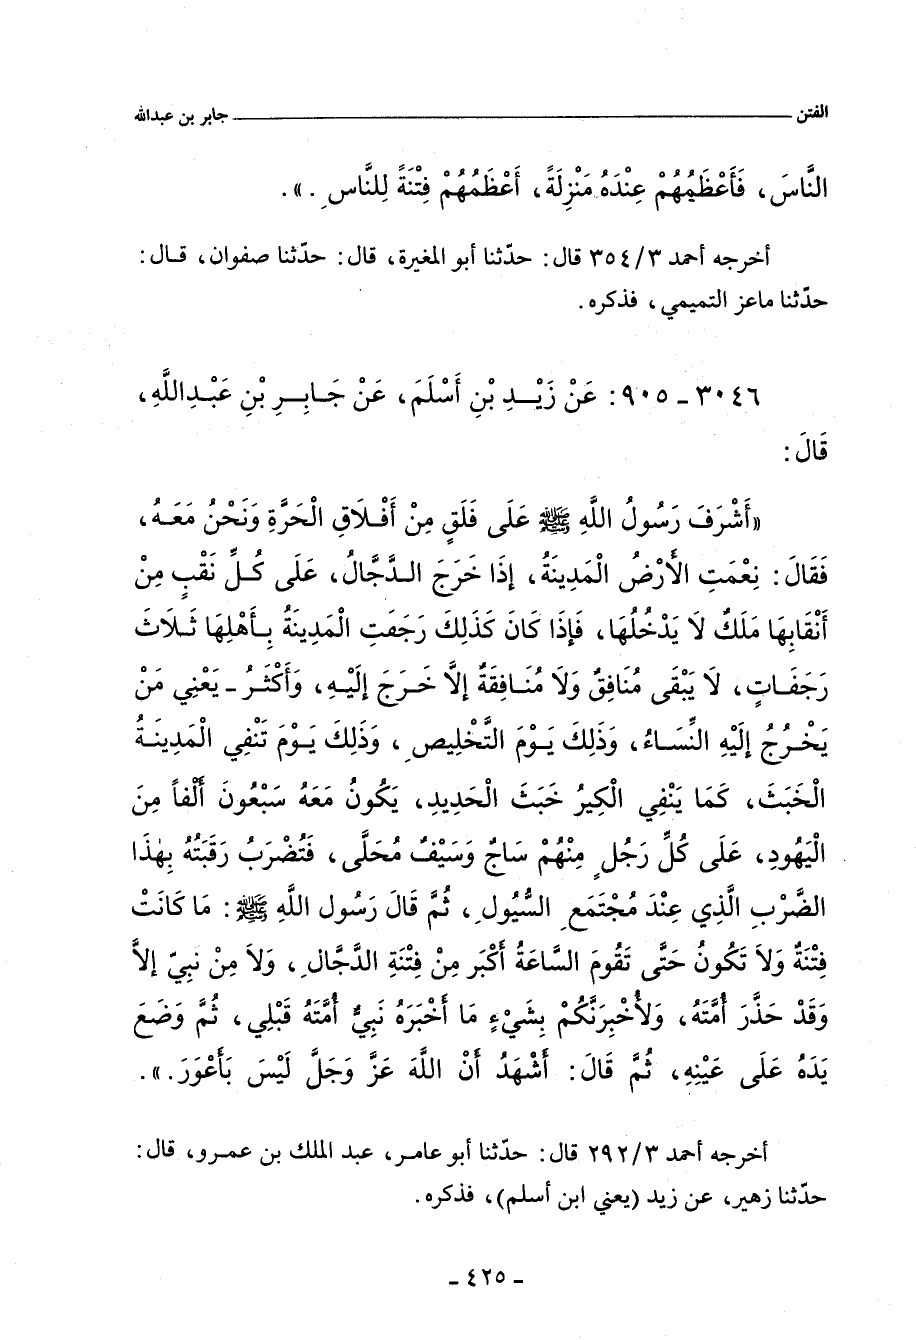 الفتن ـــــــــــــــــــــــــــــــــــــ جابر بن عبدالله
النَّاسَ، فَأَعْظَمُهُمْ عِنْدَهُ مَنْزِلَةً، أَعْظَمُهُمْ فِتْنَةً لِلنَّاسِ.».
أخرجه أحمد ٣/٣٥٤ قال: حدّثنا أبو المغيرة، قال: حدّثنا صفوان، قـال:
حدّثنا ماعز التميمي، فذكره.
٣٠٤٦ ـ ٩٠٥: عَنْ زَيْـدِ بْنِ أَسْلَمَ، عَنْ جَـابِـرِ بْنِ عَبْـدِاللَّهِ،
قَالَ:
«أَشْرَفَ رَسُولُ اللَّهِ ﷺ عَلَى فَلَقٍ مِنْ أَفْـلَاقِ الْحَرَّةِ وَنَحْنُ مَعَـهُ،
فَقَالَ: نِعْمَتِ الْأَرْضُ الْمَدِينَةُ، إِذَا خَرَجَ الـدَّجَّالُ، عَلَى كُـلِّ نَقْبٍ مِنْ
أَنْقَابِهَا مَلَكٌ لَا يَدْخُلُهَا، فَإِذَا كَانَ كَذَلِكَ رَجَفَتِ الْمَدِينَةُ بِـأَهْلِهَا ثَـلَاثَ
رَجَفَـاتٍ، لَا يَبْقَى مُنَافِقٌ وَلَا مُنَـافِقَةٌ إِلَّا خَـرَجَ إِلَيْـهِ، وَأَكْثَـرُ ـ يَعْنِي مَنْ
يَخْـرُجُ إِلَيْهِ النِّسَـاءُ، وَذَلِكَ يَـوْمَ التَّخْلِيصِ، وَذَلِكَ يَـوْمَ تَنْفِي الْمَدِينَـةُ
الْخَبَثَ، كَمَا يَنْفِي الْكِيرُ خَبَثَ الْحَدِيدِ، يَكُونُ مَعَهُ سَبْعُونَ أَلْفاً مِنَ
الْيَهُودِ، عَلَى كُلِّ رَجُلٍ مِنْهُمْ سَاجٌ وَسَيْفٌ مُحَلَّى، فَتُضْرَبُ رَقَبَتُهُ بِهٰذَا
الضَّرْبِ الَّذِي عِنْدَ مُجْتَمَعِ السُّيُولِ، ثُمَّ قَالَ رَسُول اللَّهِ ﷺ: مَا كَانَتْ
فِتْنَةٌ وَلَا تَكُونُ حَتَّى تَقُومَ السَّاعَةُ أَكْبَر مِنْ فِتْنَةِ الدَّجَّالِ، وَلَا مِنْ نَبِيّ إِلَّا
وَقَدْ حَذَّرَ أُمَّتَهُ، وَلَأُخْبِرَنَّكُمْ بِشَيْءٍ مَا أَخْبَرَهُ نَبِيٌّ أُمَّتَهُ قَبْلِي، ثُمَّ وَضَعَ
يَدَهُ عَلَى عَيْنِهِ، ثُمَّ قَالَ: أَشْهَدُ أَنَّ اللَّهَ عَزَّ وَجَلَّ لَيْسَ بَأَعْوَرَ.».
أخرجه أحمد ٣/٢٩٢ قال: حدّثنا أبو عامـر، عبـد الملك بن عمـرو، قال:
حدّثنا زهير، عن زيد (يعني ابن أسلم)، فذكره.
ـ ٤٢٥ ـ